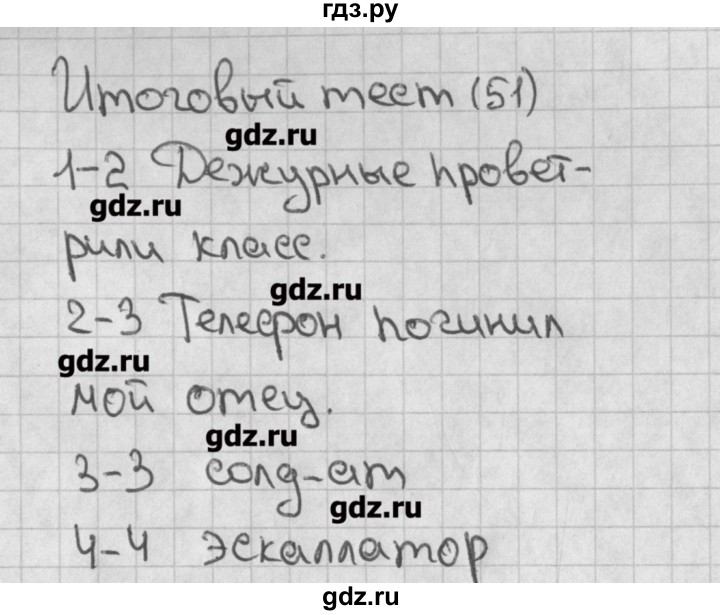 гдз.ру
Итоговый тест (51)
gdz.ru
1-2 Дежурные провет-
gdz.ru
рили класс.
gdz.ru
2-3 Телефон починил
gdz.ru
мой отец.
gdz.ru
3-3 солд-ат
gdz.ru
4-4 эскаллатор
gdz.ru